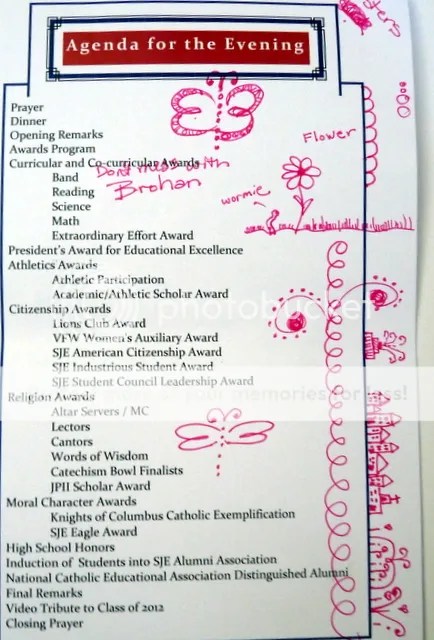 Agenda for the Evening
Prayer
Dinner
Opening Remarks
Awards Program
Curricular and Co-curricular Awards
Don't mess with
Brohan
Flower
wormie
Band
Reading
Science
Math
Extraordinary Effort Award
President's Award for Educational Excellence
Athletics Awards
Athletic Participation
Academic/Athletic Scholar Award
Citizenship Awards
photobucket
Lions Club Award
VFW Women's Auxiliary Award
SJE American Citizenship Award
SJE Industrious Student Award
SJE Student Council Leadership Award
memories for less!
Religion Awards
Altar Servers / MC
Lectors
Cantors
Words of Wisdom
Catechism Bowl Finalists
JPII Scholar Award
Moral Character Awards
Knights of Columbus Catholic Exemplification
SJE Eagle Award
High School Honors
Induction of Students into SJE Alumni Association
National Catholic Educational Association Distinguished Alumni
Final Remarks
Video Tribute to Class of 2012
Closing Prayer